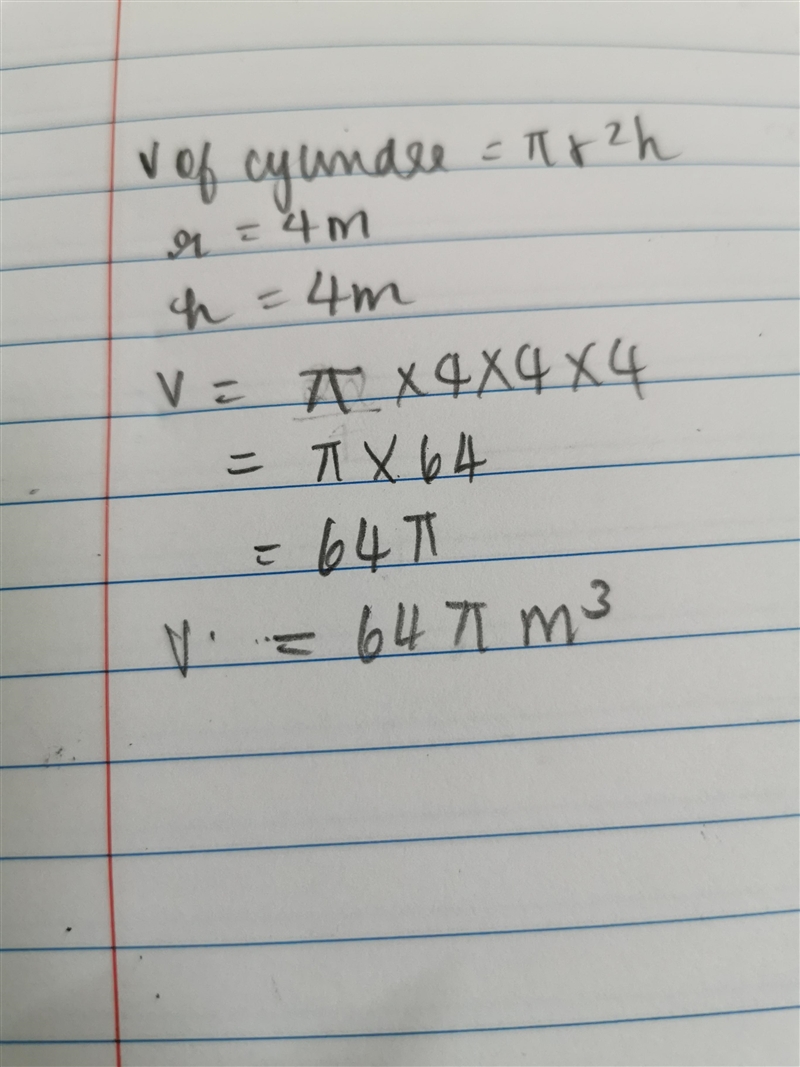 V of cylinder = πr²h
r = 4m
h = 4m
V = π × 4 × 4 × 4
= π × 64
= 64 π
V = 64 π m³